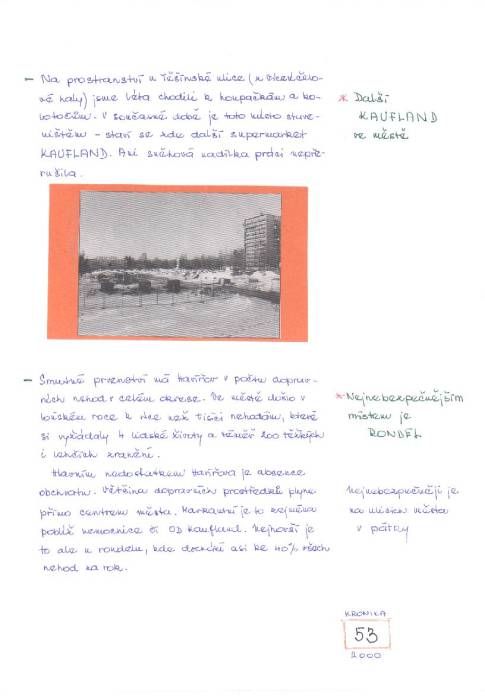 – Na prostranství u Těšínské ulice (u Víceúčelo-
vé haly) jsme léta chodili k houpačkám a ko-
lotočům. V současné době je toto místo stave-
ništěm – staví se zde další supermarket
KAUFLAND. Ani sněhová nadílka práci nepře-
rušila.
* Další
KAUFLAND
ve městě
– Smutné prvenství má Havířov v počtu doprav-
ních nehod v celém okrese. Ve městě došlo v
loňském roce k více než tisíci nehodám, které
si vyžádaly 4 lidské životy a téměř 200 těžkých
i lehčích zranění.
Hlavním nedostatkem Havířova je absence
obchvatu. Většina dopravních prostředků plyne
přímo centrem města. Markantní je to zejména
poblíž nemocnice či OD Kaufland. Nejhorší je
to ale u rondelu, kde dochází asi ke 40% všech
nehod na rok.
* Nejnebezpečnějším
místem je
RONDEL
Nejnebezpečněji je
na ulicích města
v pátky
KRONIKA
53
2000